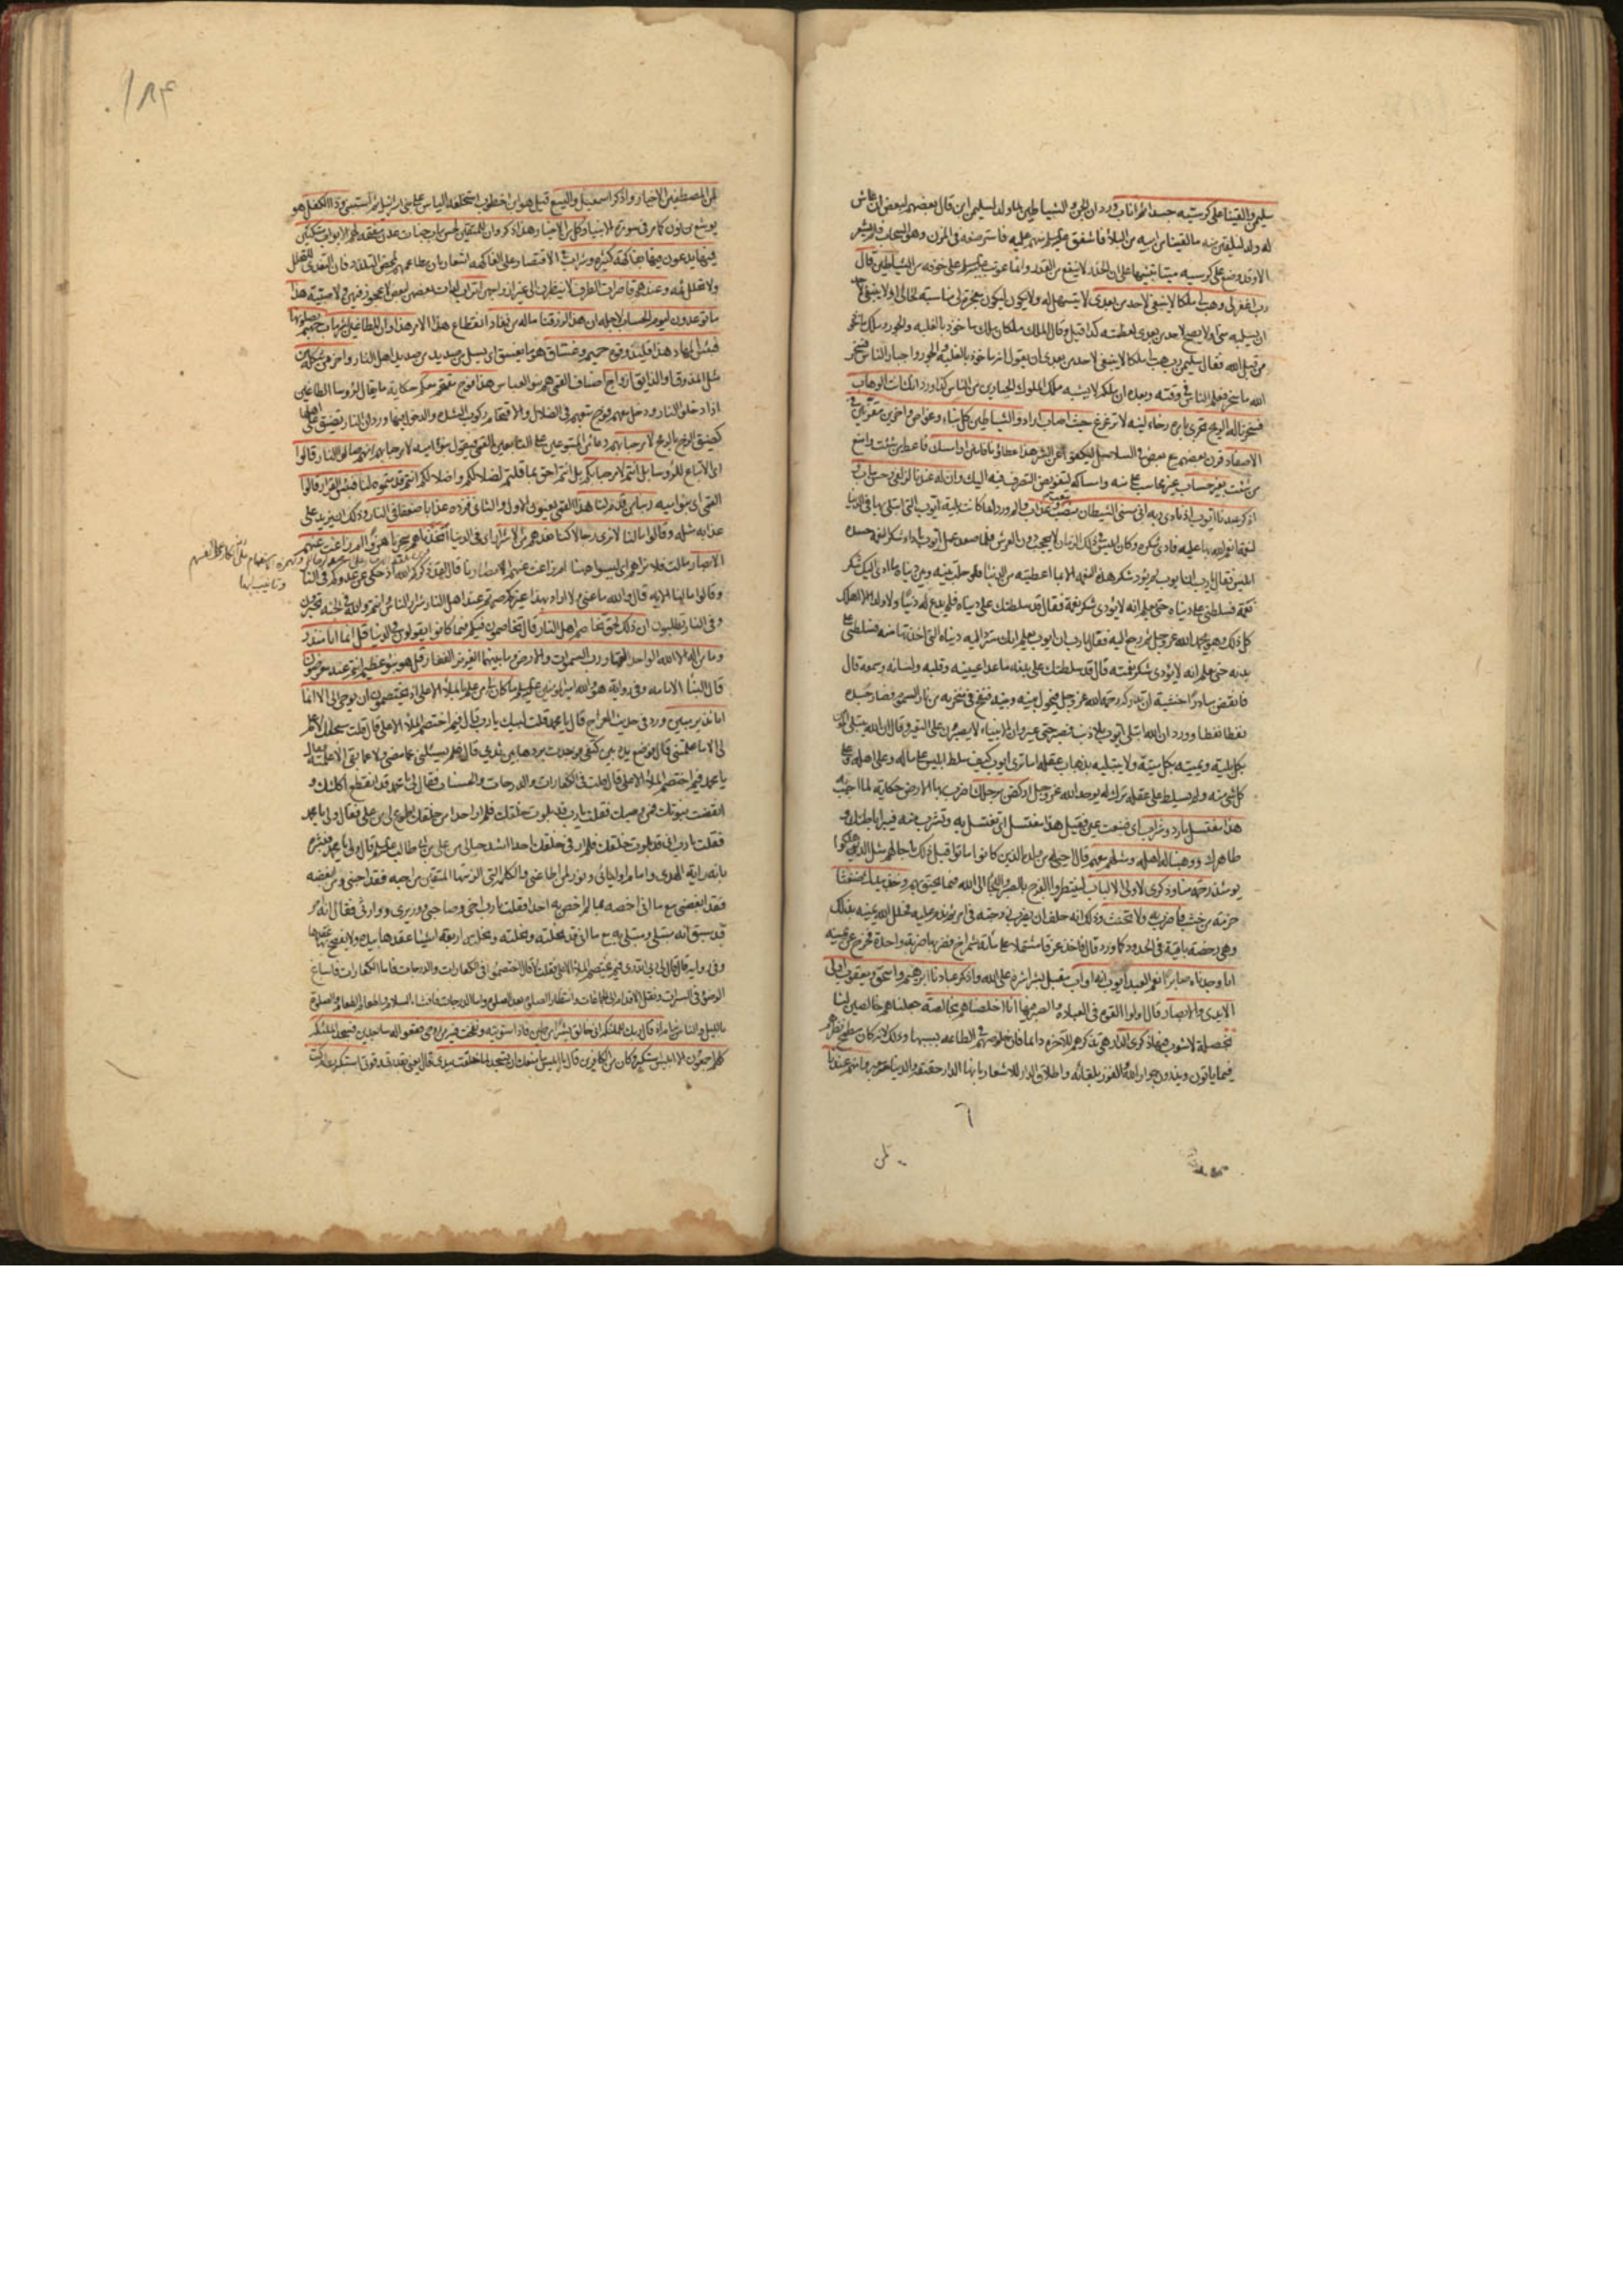 سليمن والقينا على كرسيه جسدا ثم اناب ورد ان الجن والشياطين لما ولد لسليمن ابن قال بعضهم لبعض ان عاش
له ولد لنلقين منه ما لقينا من ابيه من البلاء فاشفق منهم عليه فاسترضعه في المزن وهو السحاب فلم يشعر
الا وقد وضع على كرسيه ميتا تنبيها على ان الحذر لا ينفع من القدر وانما عوتب على خوفه من الشياطين قال
رب اغفر لي وهب لي ملكا لا ينبغي لاحد من بعدي لا يتسهل له ولا يكون ليكون معجزة لي مناسبة لحالي او لا ينبغي لاحد
ان يسلبه مني او لا يصح لاحد من بعدي لعظمته كذا قيل وقال الملك ملكان ملك ماخوذ بالغلبة والجور وملك ماخوذ
من قبل الله فقال سليمن رب هب لي ملكا لا ينبغي لاحد من بعدي ان يقول انه ماخوذ بالغلبة والجور واجبار الناس فسخر
الله ما سخر فعلم الناس في وقته وبعده ان ملكه لا يشبه ملك الملوك الجبارين من الناس كذا ورد انك انت الوهاب
فسخرنا له الريح تجري بامره رخاء لينة لا تزعزع حيث اصاب اراد والشياطين كل بناء وغواص واخرين مقرنين في
الاصفاد قرن بعضهم مع بعض في السلاسل ليكفوا عن الشر هذا عطاؤنا فامنن او امسك فاعط من شئت وامنع
من شئت بغير حساب غير محاسب على منه وامساكه لتفويض التصرف فيه اليك وان له عندنا لزلفى وحسن ماب و
اذكر عبدنا ايوب اذ نادى ربه اني مسني الشيطان بنصب وعذاب والم ورد انما كانت بلية ايوب التي ابتلي بها في الدنيا
لنعمة انعم الله بها عليه فادى شكره وكان ابليس في ذلك الزمان لا يحجب دون العرش فلما صعد عمل ايوب باداء شكر النعمة حسده
ابليس فقال يا رب ان ايوب لم يؤد شكر هذه النعمة الا بما اعطيته من الدنيا فلو حلت بينه وبين دنياه ما ادى اليك شكر
نعمة فسلطني على دنياه حتى تعلم انه لا يؤدي شكر نعمة فقال قد سلطتك على دنياه فلم يدع له دنيا ولا ولدا الا اهلك
كل ذلك وهو يحمد الله عز وجل ثم رجع اليه فقال يا رب ان ايوب يعلم انك سترد اليه دنياه التي اخذتها منه فسلطني على
بدنه حتى تعلم انه لا يؤدي شكر نعمته قال قد سلطتك على بدنه ما عدا عينيه وقلبه ولسانه وسمعه قال
فانقض مبادرا خشية ان تدركه رحمة الله عز وجل فيحول بينه وبينه فنفخ في منخريه من نار السموم فصار جسده
نقطا نقطا وورد ان الله ابتلى ايوب بلا ذنب فصبر حتى عير وان الانبياء لا يصبرون على التعيير وقال ان الله يبتلي المؤمن
بكل بلية ويميته بكل ميتة ولا يبتليه بذهاب عقله اما ترى ايوب كيف سلط ابليس على ماله وعلى اهله وعلى
كل شيء منه ولم يسلط على عقله ترك له يوحد الله عز وجل اركض برجلك اضرب بها الارض حكاية لما اجيب به
هذا مغتسل بارد وشراب اي فنبعت عين فقيل هذا مغتسل اي تغتسل به وتشرب منه فيبرا باطنك و
ظاهرك ووهبنا له اهله ومثلهم معهم قال احيي له من ولده الذين كانوا ماتوا قبل ذلك باجالهم مثل الذين هلكوا
يومئذ رحمة منا وذكرى لاولي الالباب لينتظروا الفرج بالصبر واللجا الى الله فيما يحيق بهم وخذ بيدك ضغثا
حزمة من خشب فاضرب به ولا تحنث وذلك انه حلف ان يضرب زوجته في امر ثم ندم عليه فحلل الله يمينه بذلك
وهي رخصة باقية في الحدود كما ورد قال فاخذ عذقا مشتملا على مائة شمراخ فضربها ضربة واحدة فخرج عن يمينه
انا وجدناه صابرا نعم العبد ايوب انه اواب مقبل بشراشره على الله واذكر عبادنا ابرهيم واسحق ويعقوب اولي
الايدي والابصار قال اولوا القوة في العبادة والصبر فيها انا اخلصناهم بخالصة جعلناهم خالصين لنا
بخصلة لا شوب فيها ذكرى الدار هي تذكرهم للاخرة دائما فان خلوصهم في الطاعة بسببها وذلك لانه كان مطمح نظرهم
فيما ياتون ويذرون جوار الله والفوز بلقائه واطلاق الدار للاشعار بانها الدار حقيقة والدنيا معبر وانهم عندنا
لمن
١٨٤
لمن المصطفين الاخيار واذكر اسمعيل واليسع قيل هو ابن اخطوب استخلفه الياس على بني اسرائيل ثم استنبئ وذا الكفل هو
يوشع بن نون كما مر في سورة الانبياء وكل من الاخيار هذا ذكر وان للمتقين لحسن ماب جنات عدن مفتحة لهم الابواب متكئين
فيها يدعون فيها بفاكهة كثيرة وشراب الاقتصار على الفاكهة للاشعار بان مطاعمهم لمحض التلذذ فان التغذي للتحلل
ولا تحلل ثمه وعندهم قاصرات الطرف لا ينظرن الى غير ازواجهن اتراب لدات بعضهن لبعض لا عجوز فيهن ولا صبية هذا
ما توعدون ليوم الحساب لاجله ان هذا لرزقنا ماله من نفاد انقطاع هذا الامر هذا وان للطاغين لشر ماب جهنم يصلونها
فبئس المهاد هذا فليذوقوه حميم وغساق هو ما يغسق اي يسيل من صديد اهل النار واخر من شكله من
مثل المذوق او الذائق ازواج اصناف العمى هم بنو العباس هذا فوج مقتحم معكم حكاية ما يقال للرؤسا الطاغين
اذا دخلوا النار ودخل معهم فوج تبعهم في الضلال والاقتحام ركوب الشدة والدخول فيها ورد ان النار تضيق على اهلها
كضيق الزج بالرمح لا مرحبا بهم دعاء من المتبوعين على التابعين القمي فيقول بنو امية لا مرحبا بهم انهم صالوا النار قالوا
اي الاتباع للرؤسا بل انتم لا مرحبا بكم بل انتم احق بما قلتم لضلالكم واضلالكم انتم قدمتموه لنا فبئس القرار قالوا
القمي اي بنو امية ربنا من قدم لنا هذا القمي يعنون الاول والثاني فزده عذابا ضعفا في النار وذلك ان يزيد على
عذابه مثله وقالوا ما لنا لا نرى رجالا كنا نعدهم من الاشرار اي في الدنيا اتخذناهم سخريا هزؤا ام زاغت عنهم
الابصار مالت فلا نراهم اي ليسوا هيهنا ام زاغت عنهم ابصارنا قال لقد ذكركم الله اذ حكى عن عدوكم في النار
وقالوا ما لنا الاية قال والله ما عنى ولا اراد بهذا غيركم صرتم عند اهل النار شرار الناس وانتم والله في الجنة تحبرون
وفي النار تطلبون ان ذلك لحق تخاصم اهل النار قال يتخاصمون فيكم فيما كانوا يقولون في الدنيا قل انما انا منذر
وما من اله الا الله الواحد القهار رب السموات والارض وما بينهما العزيز الغفار قل هو نبؤ عظيم انتم عنه معرضون
قال النبا الامامة وفي رواية هو والله امير المؤمنين ما كان لي من علم بالملا الاعلى اذ يختصمون ان يوحى الي الا انما
انا نذير مبين ورد في حديث المعراج قال يا محمد قلت لبيك يا رب قال فيم اختصم الملا الاعلى قال قلت سبحانك لا علم
لي الا ما علمتني قال فوضع يده بين كتفي فوجدت بردها بين ثديي قال فلم يسئلني عما مضى ولا عما بقي الا علمته فقال
يا محمد فيم اختصم الملا الاعلى قال قلت في الكفارات والدرجات والحسنات فقال لي يا محمد قد انقطع اكلك و
انقضت نبوتك فمن وصيك فقلت يا رب قد بلوت خلقك فلم ار احدا من خلقك اطوع لي من علي فقال ولي يا محمد
فقلت يا رب اني قد بلوت خلقك فلم ار في خلقك احدا اشد حبا لي من علي بن ابي طالب قال ولي يا محمد فبشره
بانه راية الهدى وامام اوليائي ونور لمن اطاعني والكلمة التي الزمتها المتقين من احبه فقد احبني ومن ابغضه
فقد ابغضني مع ما اني اخصه بما لم اخص به احدا فقلت يا رب اخي وصاحبي ووزيري ووارثي فقال انه امر
قد سبق انه مبتلى ومبتلى به مع ما اني قد نحلته ونحلته ونحلته اربعة اشياء عقدها بيده ولا يفصح بها عقدها
وفي رواية قال قال لي ربي اتدري فيم يختصم الملا الاعلى فقلت لا قال اختصموا في الكفارات والدرجات فاما الكفارات فاسباغ
الوضوء في السبرات ونقل الاقدام الى الجماعات وانتظار الصلوة بعد الصلوة واما الدرجات فافشاء السلام واطعام الطعام والصلوة
بالليل والناس نيام اذ قال ربك للملئكة اني خالق بشرا من طين فاذا سويته ونفخت فيه من روحي فقعوا له ساجدين فسجد الملئكة
كلهم اجمعون الا ابليس استكبر وكان من الكافرين قال يا ابليس ما منعك ان تسجد لما خلقت بيدي قال يعني بقدرتي وقوتي استكبرت ام كنت